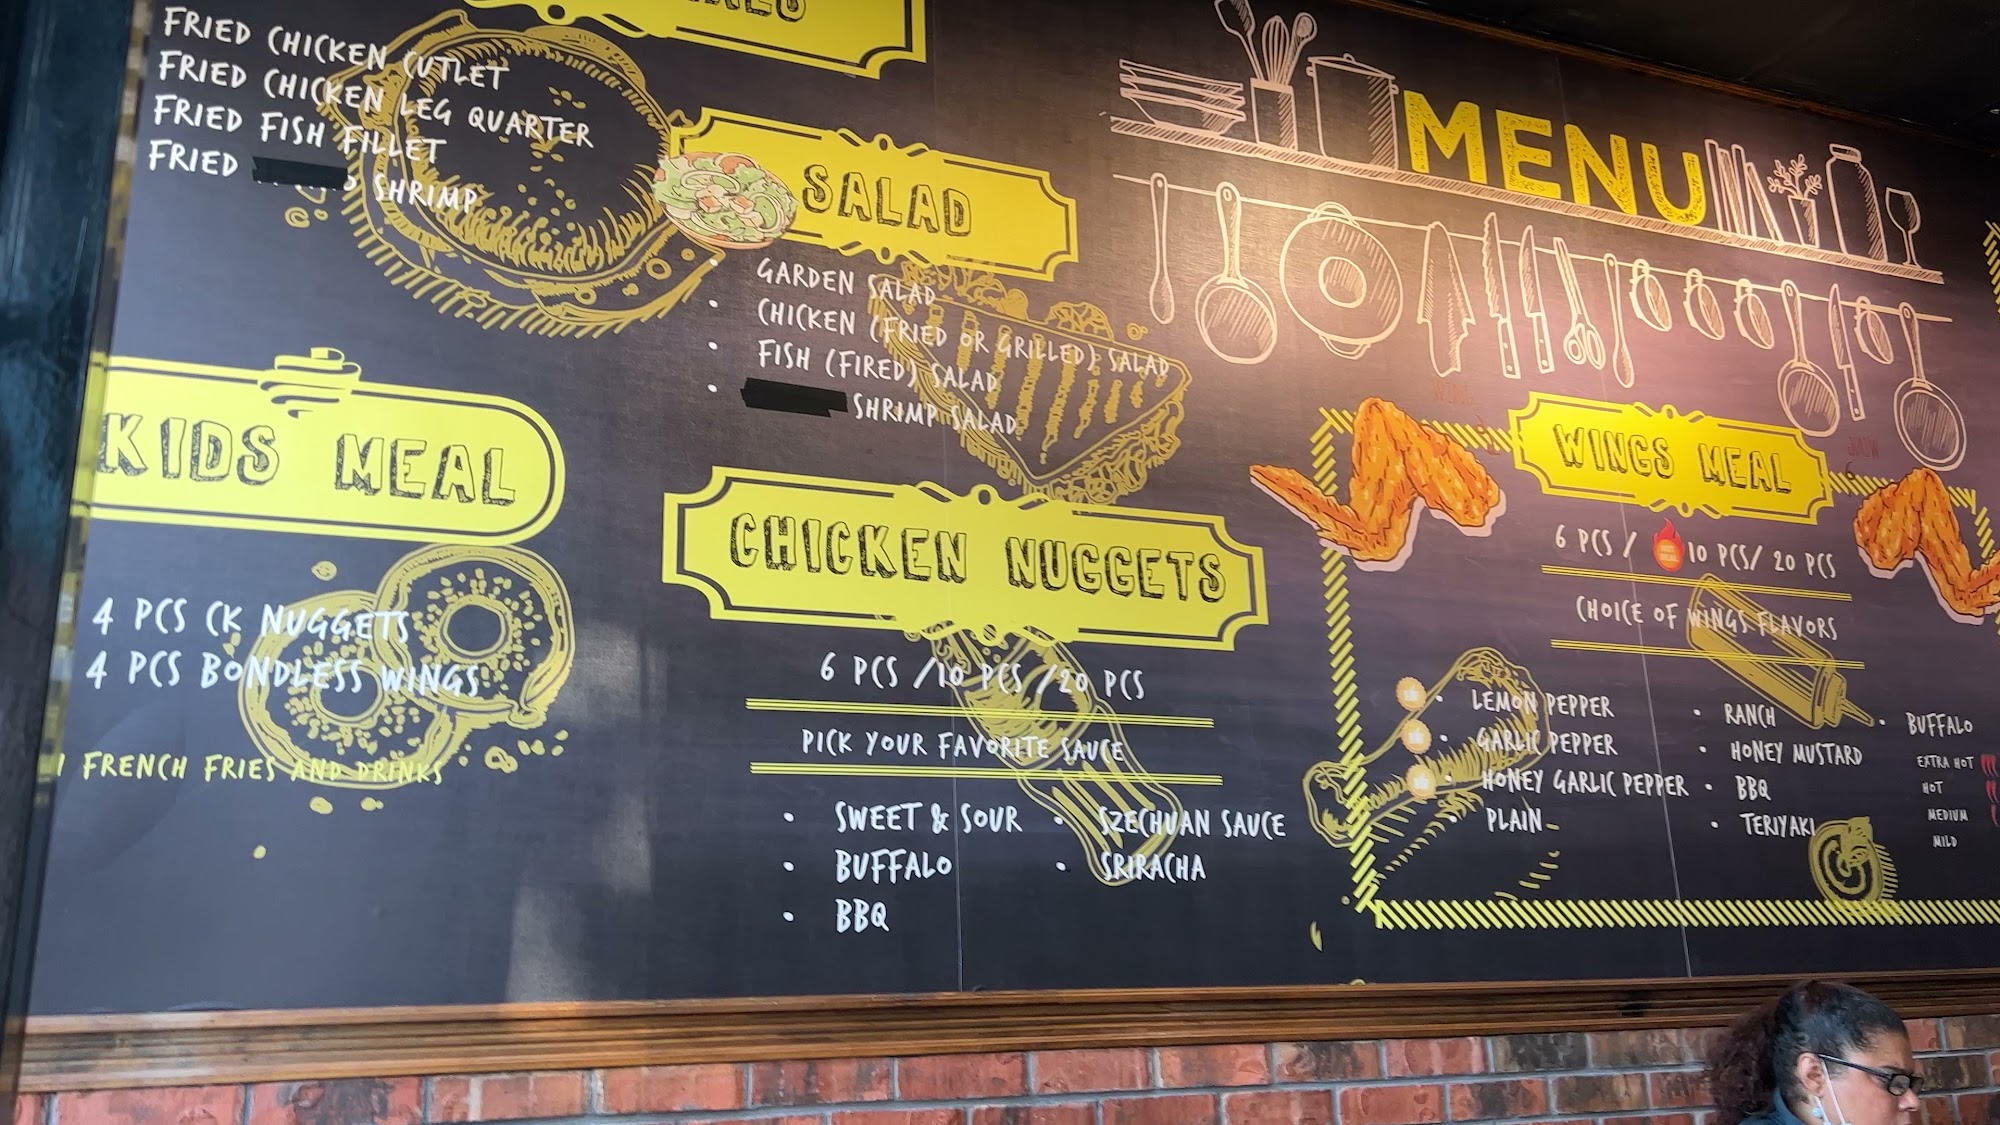 FRIED CHICKEN CUTLET
FRIED CHICKEN LEG QUARTER
FRIED FISH FILLET
FRIED SHRIMP
KIDS MEAL
4 PCS CK NUGGETS
4 PCS BONDLESS WINGS
FRENCH FRIES AND DRINKS
SALAD
• GARDEN SALAD
• CHICKEN (FRIED OR GRILLED) SALAD
• FISH (FIRED) SALAD
• SHRIMP SALAD
CHICKEN NUGGETS
6 PCS /10 PCS /20 PCS
PICK YOUR FAVORITE SAUCE
• SWEET & SOUR
• BUFFALO
• BBQ
• SZECHUAN SAUCE
• SRIRACHA
MENU
WINGS MEAL
6 PCS / 10 PCS/ 20 PCS
CHOICE OF WINGS FLAVORS
• LEMON PEPPER
• GARLIC PEPPER
• HONEY GARLIC PEPPER
• PLAIN
• RANCH
• HONEY MUSTARD
• BBQ
• TERIYAKI
• BUFFALO
EXTRA HOT
HOT
MEDIUM
MILD